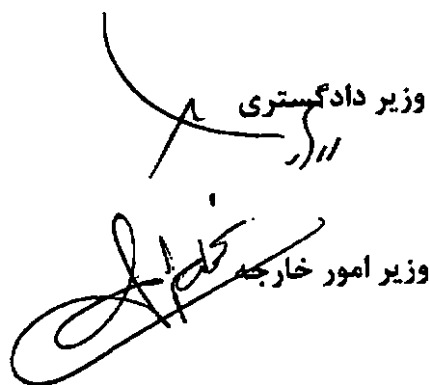 وزیر دادگستری
وزیر امور خارجه